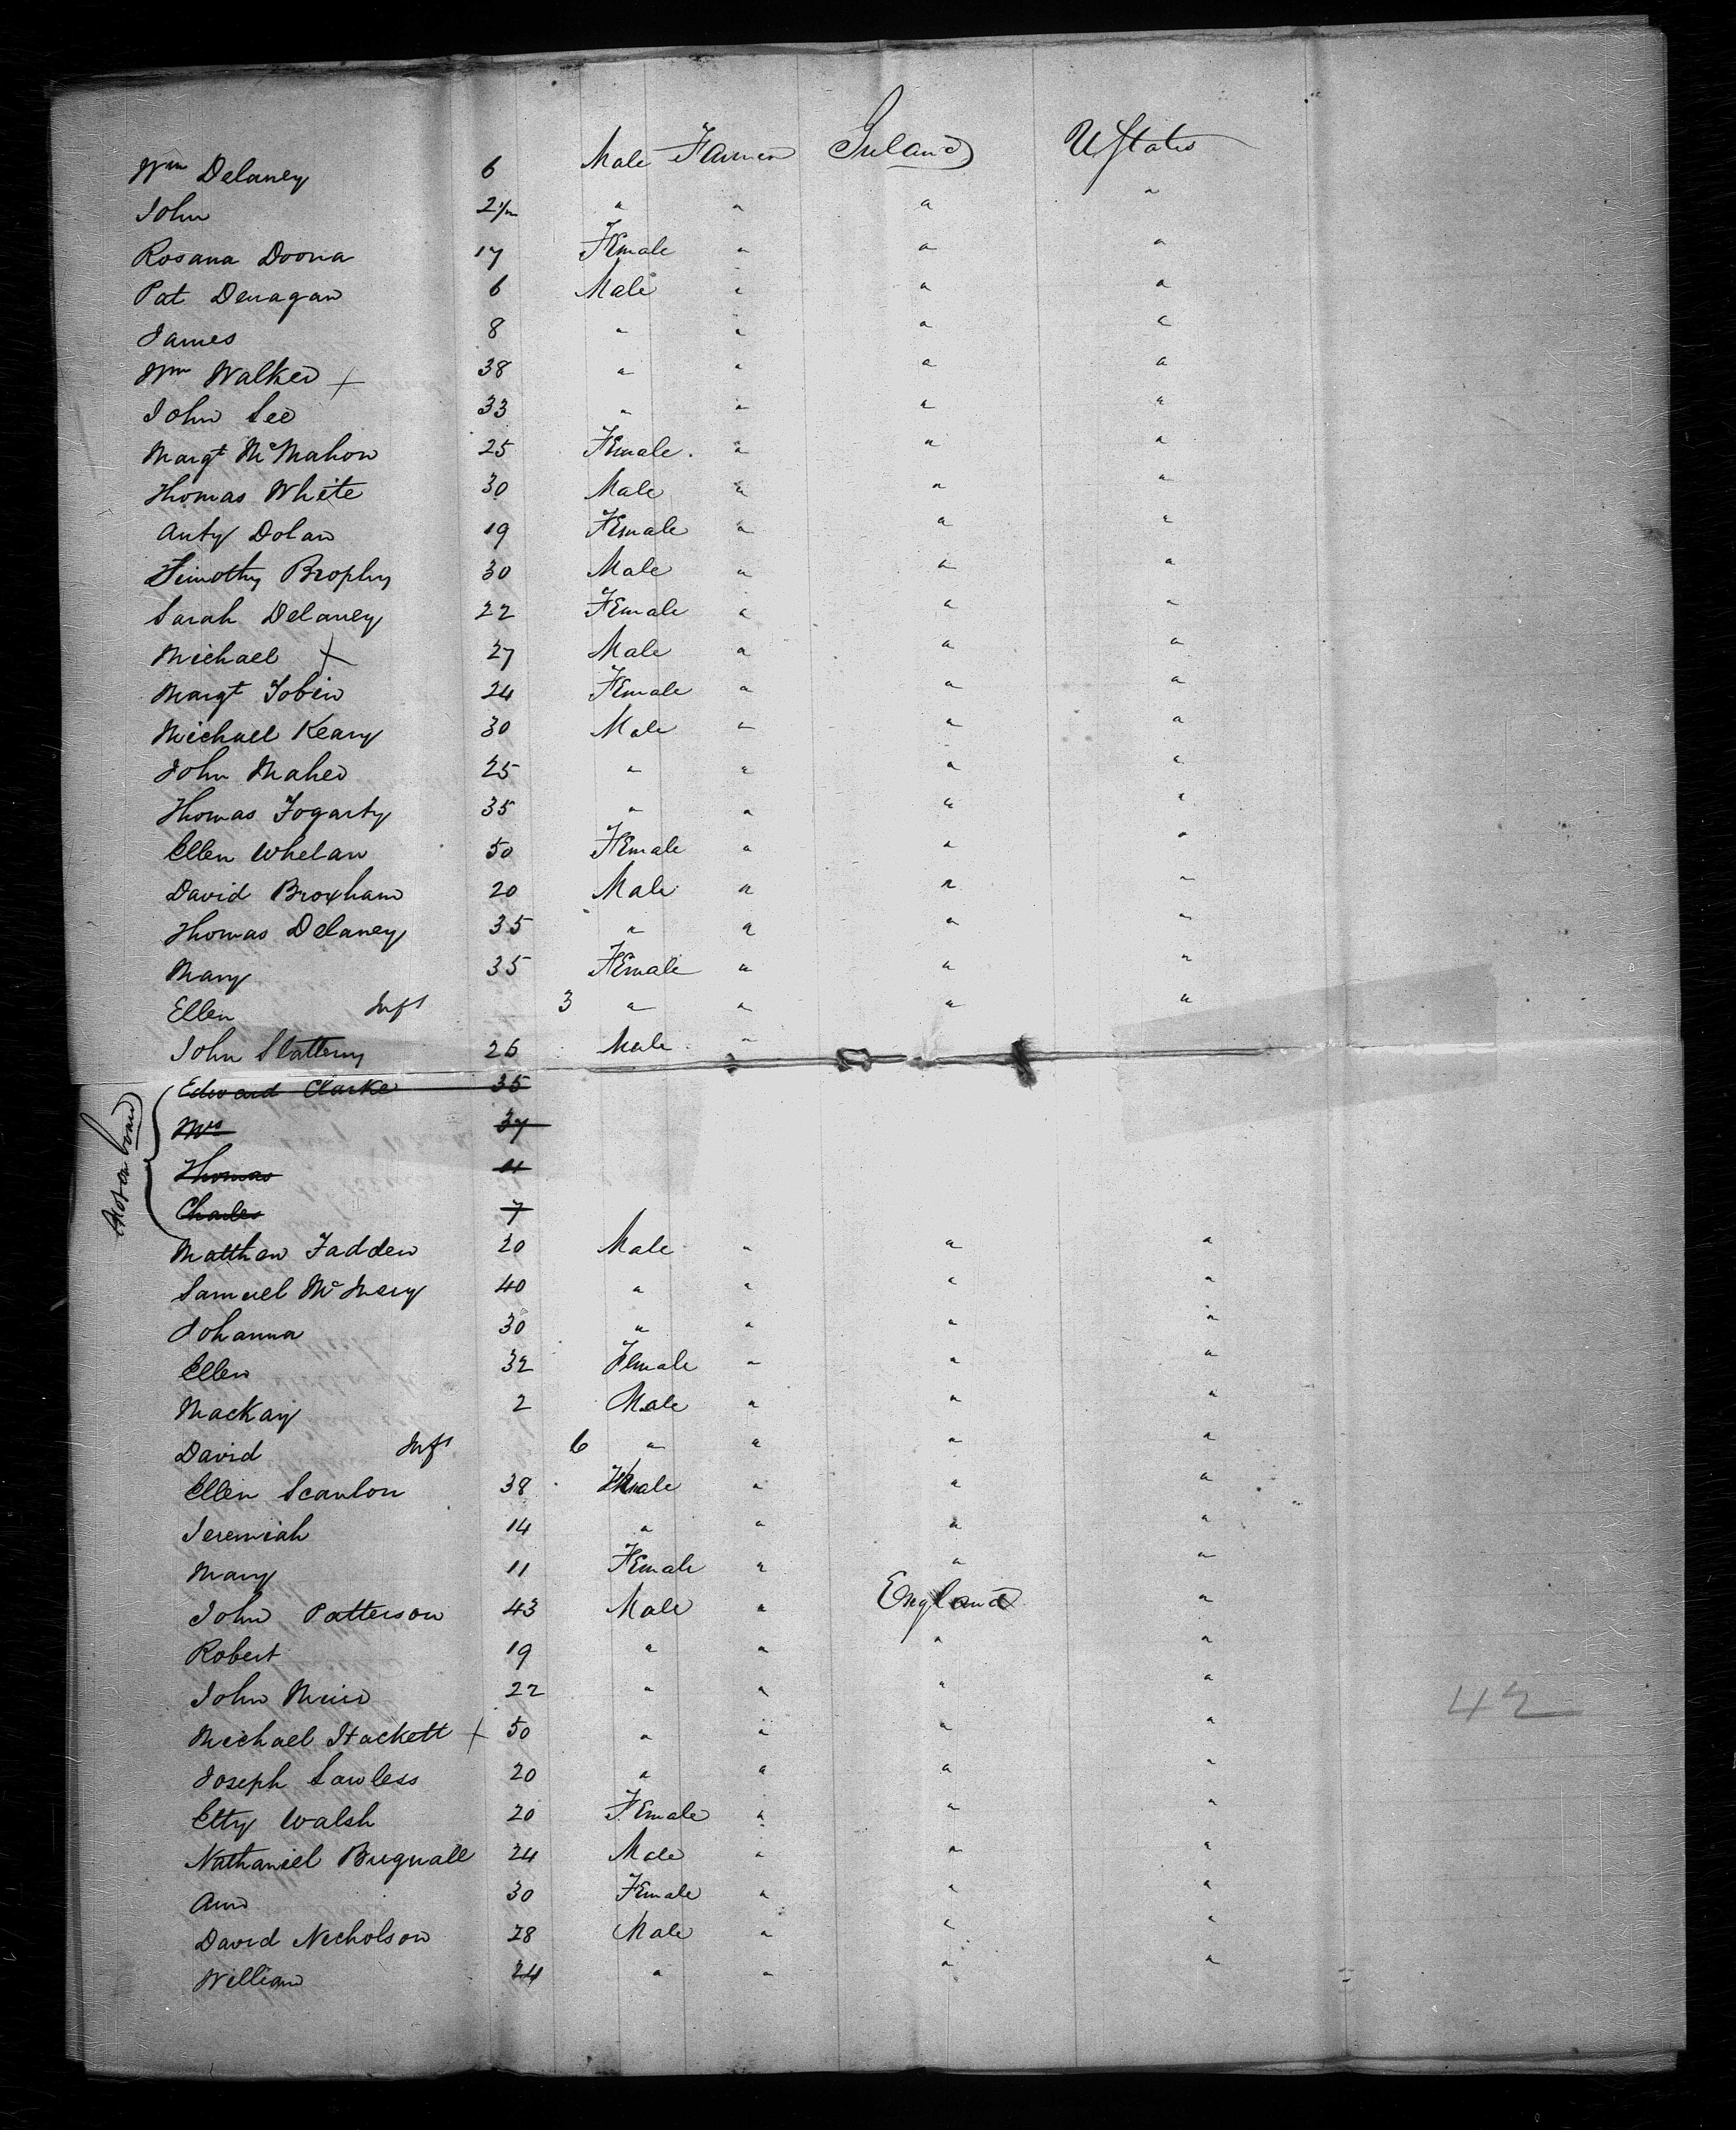 Wm Delaney 6 Male Farmer Ireland U States
John 2 " " " "
Rosana Doona 17 Female " " "
Pat Denagan 6 Male " " "
James 8 " " " "
Wm Walker + 38 " " " "
John Lee 33 " " " "
Margt McMahon 25 Female " " "
Thomas White 30 Male " " "
Anty Dolan 19 Female " " "
Timothy Brophy 30 Male " " "
Sarah Delaney 22 Female " " "
Michael + 27 Male " " "
Margt Tobin 24 Female " " "
Michael Keary 30 Male " " "
John Maher 25 " " " "
Thomas Fogarty 35 " " " "
Ellen Whelan 50 Female " " "
David Broxham 20 Male " " "
Thomas Delaney 35 " " " "
Mary 35 Female " " "
Ellen Inft 3 " " " "
John Slattery 26 Male "
Not on board
Edward Clarke 35
Mrs 37
Thomas 11
Charles 7
Matthew Fadden 20 Male " " "
Samuel Mc 40 " " " "
Johanna 30 " " " "
Ellen 32 Female " " "
Mackay 2 Male " " "
David Inft 6 " " " "
Ellen Scanlon 38 Female " " "
Jeremiah 14 " " " "
Mary 11 Female " " "
John Patterson 43 Male " England "
Robert 19 " " " "
John Muir 22 " " " "
Michael Hackett + 50 " " " "
Joseph Lawless 20 " " " "
Etty Walsh 20 Female " " "
Nathaniel Bugnall 24 Male " " "
Ann 30 Female " " "
David Nicholson 28 Male " " "
William 24 " " " "
42